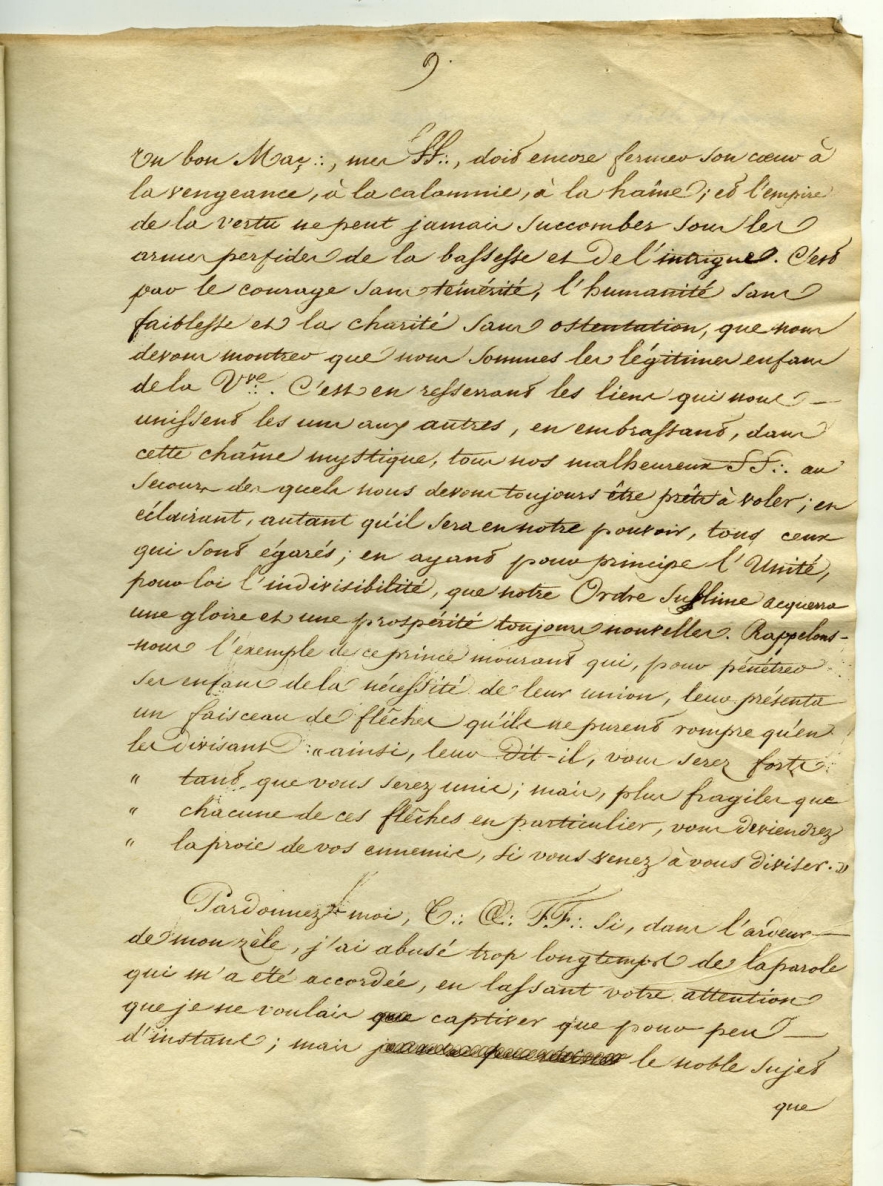 9.
Un bon Maç.:, mes FF.:, doit encore fermer son cœur à
la vengeance, à la calomnie, à la haîne; et l'empire
de la vertu ne peut jamais succomber sous les
armes perfides de la bassesse et de l'intrigue. C'est
par le courage sans témérité, l'humanité sans
faiblesse et la charité sans ostentation, que nous
devons montrer que nous sommes les légitimes enfans
de la Vve.:. C'est en resserrant les liens qui nous —
unissent les uns aux autres, en embrassant, dans
cette chaîne mystique, tous nos malheureux FF.: au
secours des quels nous devons toujours être prêts à voler; en
éclairant, autant qu'il sera en notre pouvoir, tous ceux
qui sont égarés; en ayant pour principe l'Unité,
pour loi l'indivisibilité, que notre Ordre Sublime acquerra
une gloire et une prospérité toujours nouvelles. Rappelons-
-nous l'exemple de ce prince mourant qui, pour pénétrer
ses enfans de la nécessité de leur union, leur présenta
un faisceau de flêches qu'ils ne purent rompre qu'en
les divisant : « ainsi, leur dit-il, vous serez forts
« tant que vous serez unis; mais, plus fragiles que
« chacune de ces flêches en particulier, vous deviendrez
« la proie de vos ennemis, si vous venez à vous diviser. »
Pardonnez-moi, T.: C.: F.F.: si, dans l'ardeur —
de mon zèle, j'ai abusé trop longtemps de la parole
qui m'a été accordée, en lassant votre attention
que je ne voulais que captiver que pour peu —
d'instans; mais le noble sujet
que